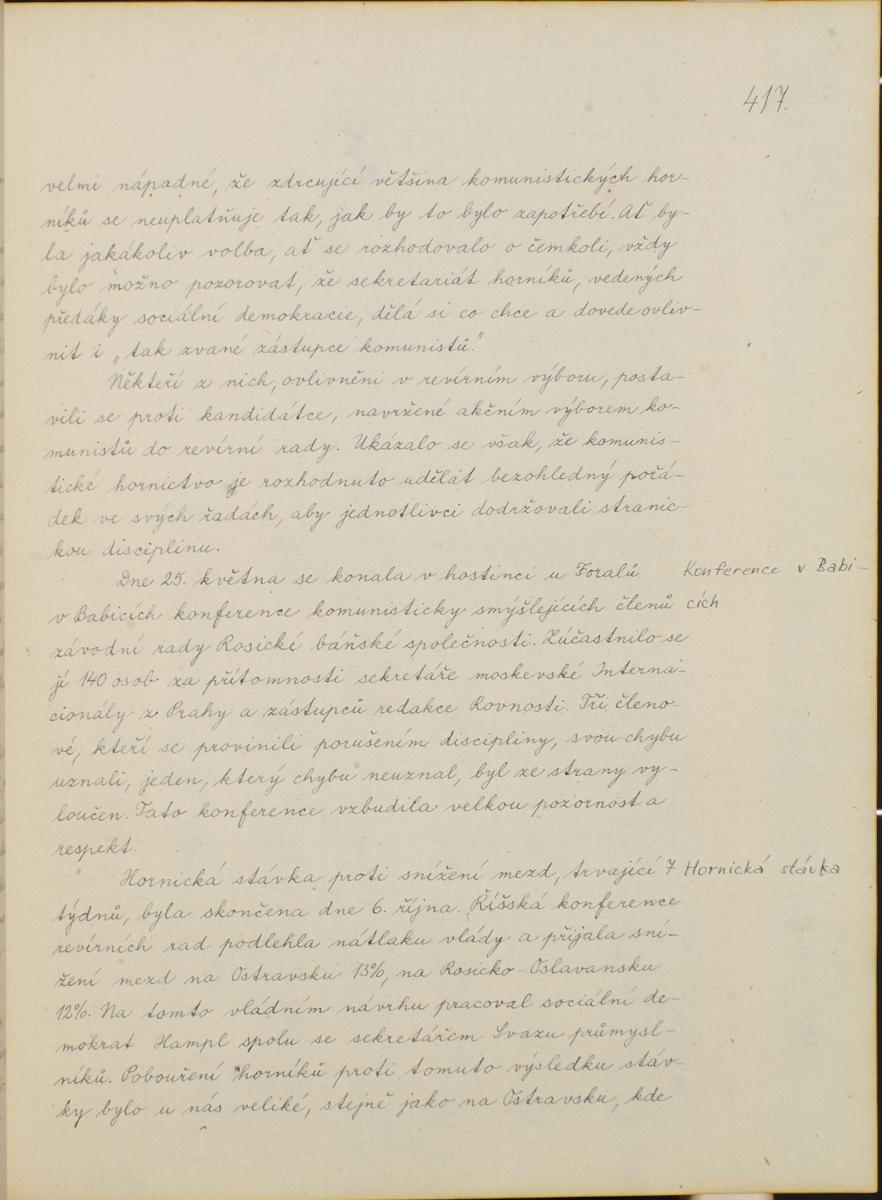 417.
velmi nápadné, že zdrcující většina komunistických hor-
níků se neuplatňuje tak, jak by to bylo zapotřebí. Ať by-
la jakákoliv volba, ať se rozhodovalo o čemkoli, vždy
bylo možno pozorovat, že sekretariát horníků, vedených
předáky sociální demokracie, dělá si co chce a dovede ovliv-
nit i „tak zvané zástupce komunistů."
Někteří z nich, ovlivněni v revírním výboru, posta-
vili se proti kandidátce, navržené akčním výborem ko-
munistů do revírní rady. Ukázalo se však, že komunis-
tické hornictvo je rozhodnuto udělát bezohledný pořá-
dek ve svých řadách, aby jednotlivci dodržovali stranic-
kou disciplinu.
Dne 25. května se konala v hostinci u Foralů
Konference v Babi-
v Babicích konference komunisticky smýšlejících členů
cích
závodní rady Rosické báňské společnosti. Zúčastnilo se
jí 140 osob za přítomnosti sekretáře moskevské Interna-
cionály z Prahy a zástupců redakce Rovnosti. Tři členo-
vé, kteří se provinili porušením discipliny, svou chybu
uznali, jeden, který chybu neuznal, byl ze strany vy-
loučen. Tato konference vzbudila velkou pozornost a
respekt.
Hornická stávka proti snížení mezd, trvající 7
Hornická stávka
týdnů, byla skončena dne 6. října. Říšská konference
revírních rad podlehla nátlaku vlády a přijala sní-
žení mezd na Ostravsku 13%, na Rosicko-Oslavansku
12%. Na tomto vládním návrhu pracoval sociální de-
mokrat Hampl spolu se sekretářem Svazu průmysl-
níků. Pobouření horníků proti tomuto výsledku stáv-
ky bylo u nás veliké, stejně jako na Ostravsku, kde